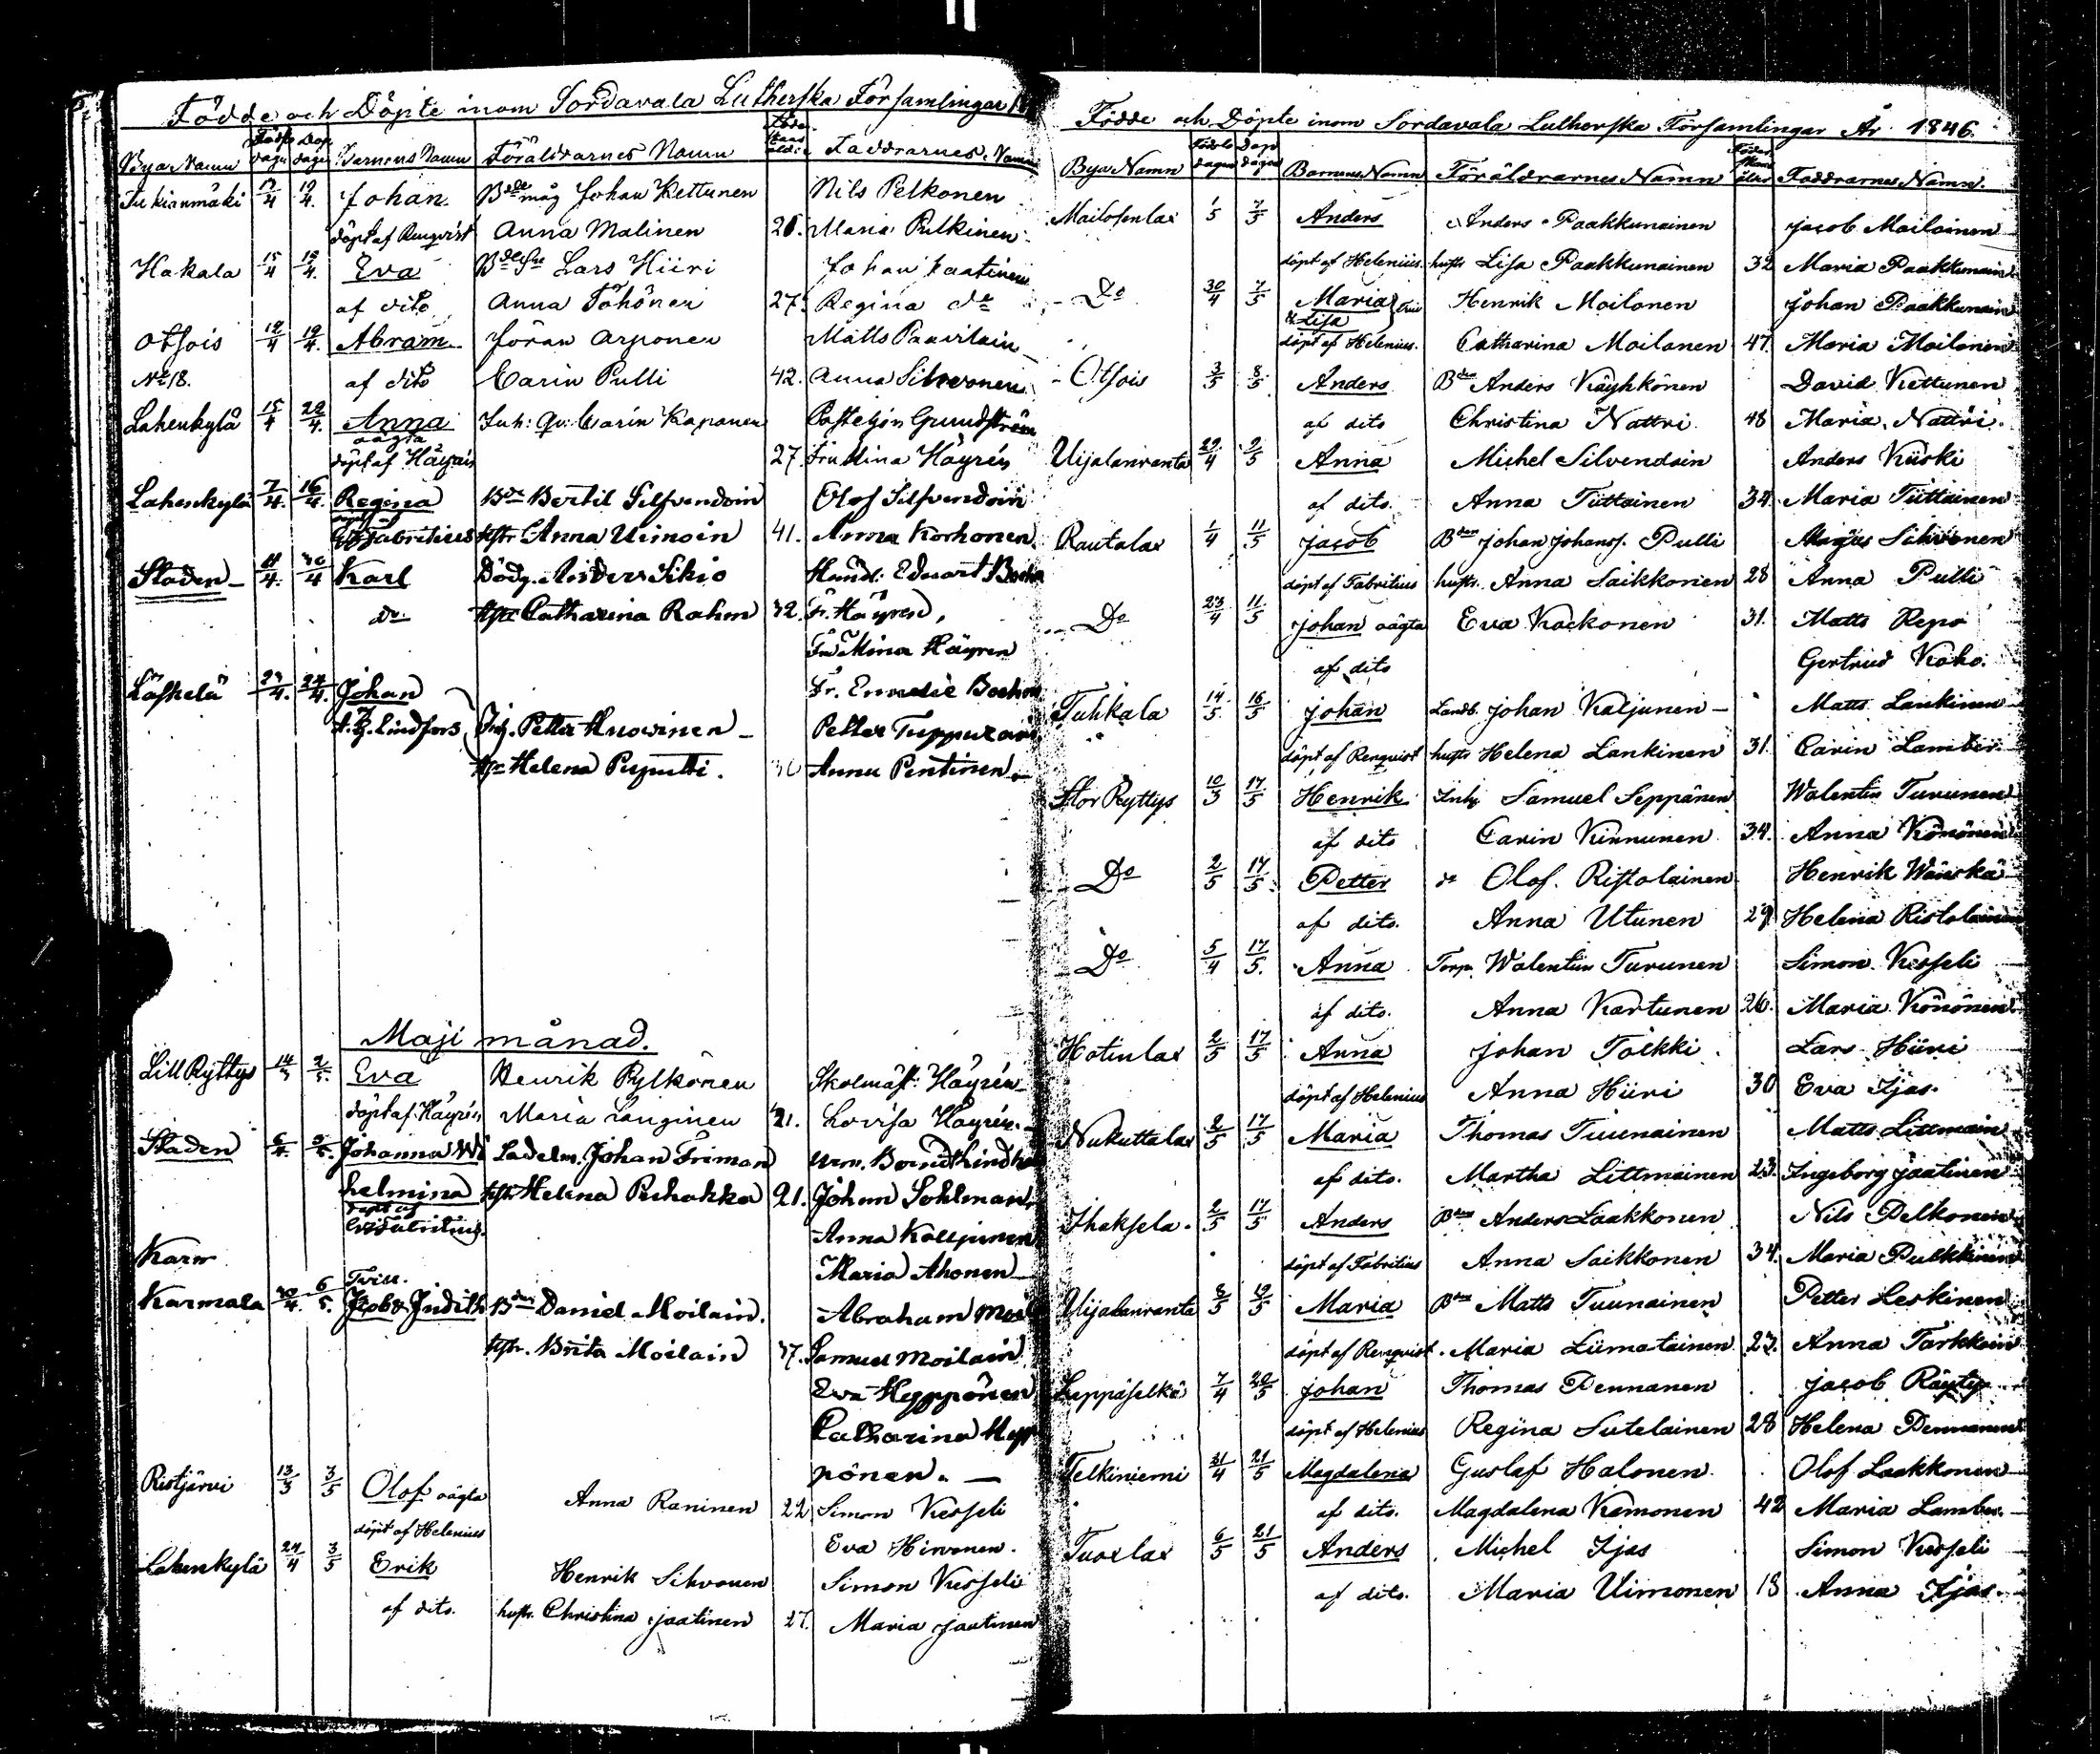 Födde och Döpte inom Sordavala Lutherska Församlingar
Bya Namn Födelse dagar Dop dagar Barnens Namn Föräldrarnes Namn Moders ålder Faddrarnes Namn
Tukianmäki 12/4 19/4. Johan. Bdemåg Johan Kettunen Nils Pelkonen
döpt af Renqvist Anna Malinen 26. Maria Pulkinen
Hakala 15/4 19/4. Eva Lars Hiiri Johan Jaatinen
af dito Anna Töhönen 27. Regina do
Otsois 12/4 19/4. Abram Jöran Arponen Matts Paavilain
No 18. af dito Carin Pulli 42. Anna Silvvonen
Lahenkylä 15/4 22/4. Anna Inh: qv: Carin Kaponen Grundström
oägta
döpt af Häyrén 27. Fru Mina Häyrén
Lahenkylä 7/4. 16/4. Regina Bdn Bertil Silfvendoin Olof Silfvendoin
Fabritius hstr Anna Uimoin 41. Anna Korhonen
Staden 11/4. 20/4 Karl Anders Sikio Handl. Eduart
do hstr Catharina Rahm 32. Fr. Häyren,
Fru Mina Häyren
Läskelä 23/4. 24/4. Johan Fr. Emelie
Lindfors Inh. Petter Huovinen Petter Tuppurain
hstr Helena Puputti. 30 Anna Pentinen
Maji månad.
Lill Ryttys 14/3 2/5. Eva Henrik Pylkönen Skolmäst: Häyrén
döpt af Häyrén Maria Langinen 21. Lovisa Häyrén.
Staden 6/4. 3/5. Johanna Wi Sadelm. Johan Friman
helmina hstr Helena Puhakka 21. Johan Sohlman
döpt af Fabritius. Anna Kaljunen
Karm Maria Ahonen
Tvill.
Karmala 30/4. 6/5. Jacob & Judith Bdn Daniel Moilain. Abraham Moil
hstr. Brita Moilain 37. Samuel Moilain
Eva Hyppönen
Catharina Hyp
pönen.
Ristjärvi 13/3 3/5 Olof oägta Anna Raninen 22 Simon Kesseli
döpt af Helenius Eva Hirvonen.
Lahenkylä 24/4 3/5 Erik Henrik Sihvonen Simon Kesseli
af dito. hustr. Christina Jaatinen 27. Maria Jaatinen
Födde och Döpte inom Sordavala Lutherska Församlingar År 1846.
Bya Namn Födelse dagar Dop dagar Barnens Namn Föräldrarnes Namn Moders ålder Faddrarnes Namn.
Mailosenlax 1/5 7/5 Anders Anders Paakkunainen Jacob Moilainen
döpt af Helenius. hustr Lisa Paakkunainen 32 Maria Paakkunain
Do 30/4 7/5 Maria Henrik Moilanen Johan Paakkunain
& Lisa
döpt af Helenius. Catharina Moilanen 47. Maria Moilanen
Otsois 3/5 8/5 Anders Bdn Anders Käyhkönen David Kettunen
af dito Christina Nättri 48 Maria Nättri.
Uijalanranta 29/4 9/5 Anna Michel Silvendoin Anders Kiiski
af dito. Anna Tiittainen 34. Maria Tiittainen
Rautalax 1/4 11/5 Jacob Bdn Johan Johanss. Pulli Sihvonen
döpt af Fabritius hustr. Anna Saikkonen 28 Anna Pulli
Do 23/4 11/5 Johan oägta Eva Kockonen 31. Matts Repo
af dito Gertrud Koho.
Tuhkala 14/5. 16/5 Johan Landb. Johan Kaljunen Matts Lankinen
döpt af Renqvist hustr Helena Lankinen 31. Carin Lamber.
Stor Ryttys 10/3 17/5 Henrik Inh Samuel Seppänen Walentin Turunen
af dito Carin Kinnunen 34. Anna Könönen
Do 2/5 17/5. Petter do Olof. Ristolainen Henrik
af dito. Anna Utunen 29 Helena Ristolainen
Do 5/4 17/5. Anna Torp. Walentin Turunen Simon Kesseli
af dito. Anna Kartunen 26. Maria Könönen
Hotinlax 2/5 17/5 Anna Johan Tolkki Lars Hiiri
döpt af Helenius Anna Hiiri 30 Eva Ijas.
Nukuttalax 2/5 17/5 Maria Thomas Tuunainen Matts Littmain
af dito. Martha Littmainen 23. Ingeborg Jaatinen
Ihaksela. 2/5 17/5 Anders Bdn Anders Laakkonen Nils Pelkonen
döpt af Fabritius Anna Saikkonen 34. Maria Pulkkinen
Uijalanranta 2/5 19/5 Maria Bdn Matts Tuunainen Petter Leskinen
döpt af Renqvist. Maria Liimatainen 23. Anna Tarkkain
Leppäselkä 7/4 20/5 Johan Thomas Pennanen Jacob
döpt af Helenius Regina Sutelainen 28 Helena Pennanen
Telkiniemi 21/4 21/5 Magdalena Gustaf Halonen. Olof Laakkonen
af dito. Magdalena Kemonen 42 Maria Lamber.
Tuoxlax 6/5 21/5 Anders Michel Ijas Simon Kesseli
af dito. Maria Uimonen 18 Anna Ijas.